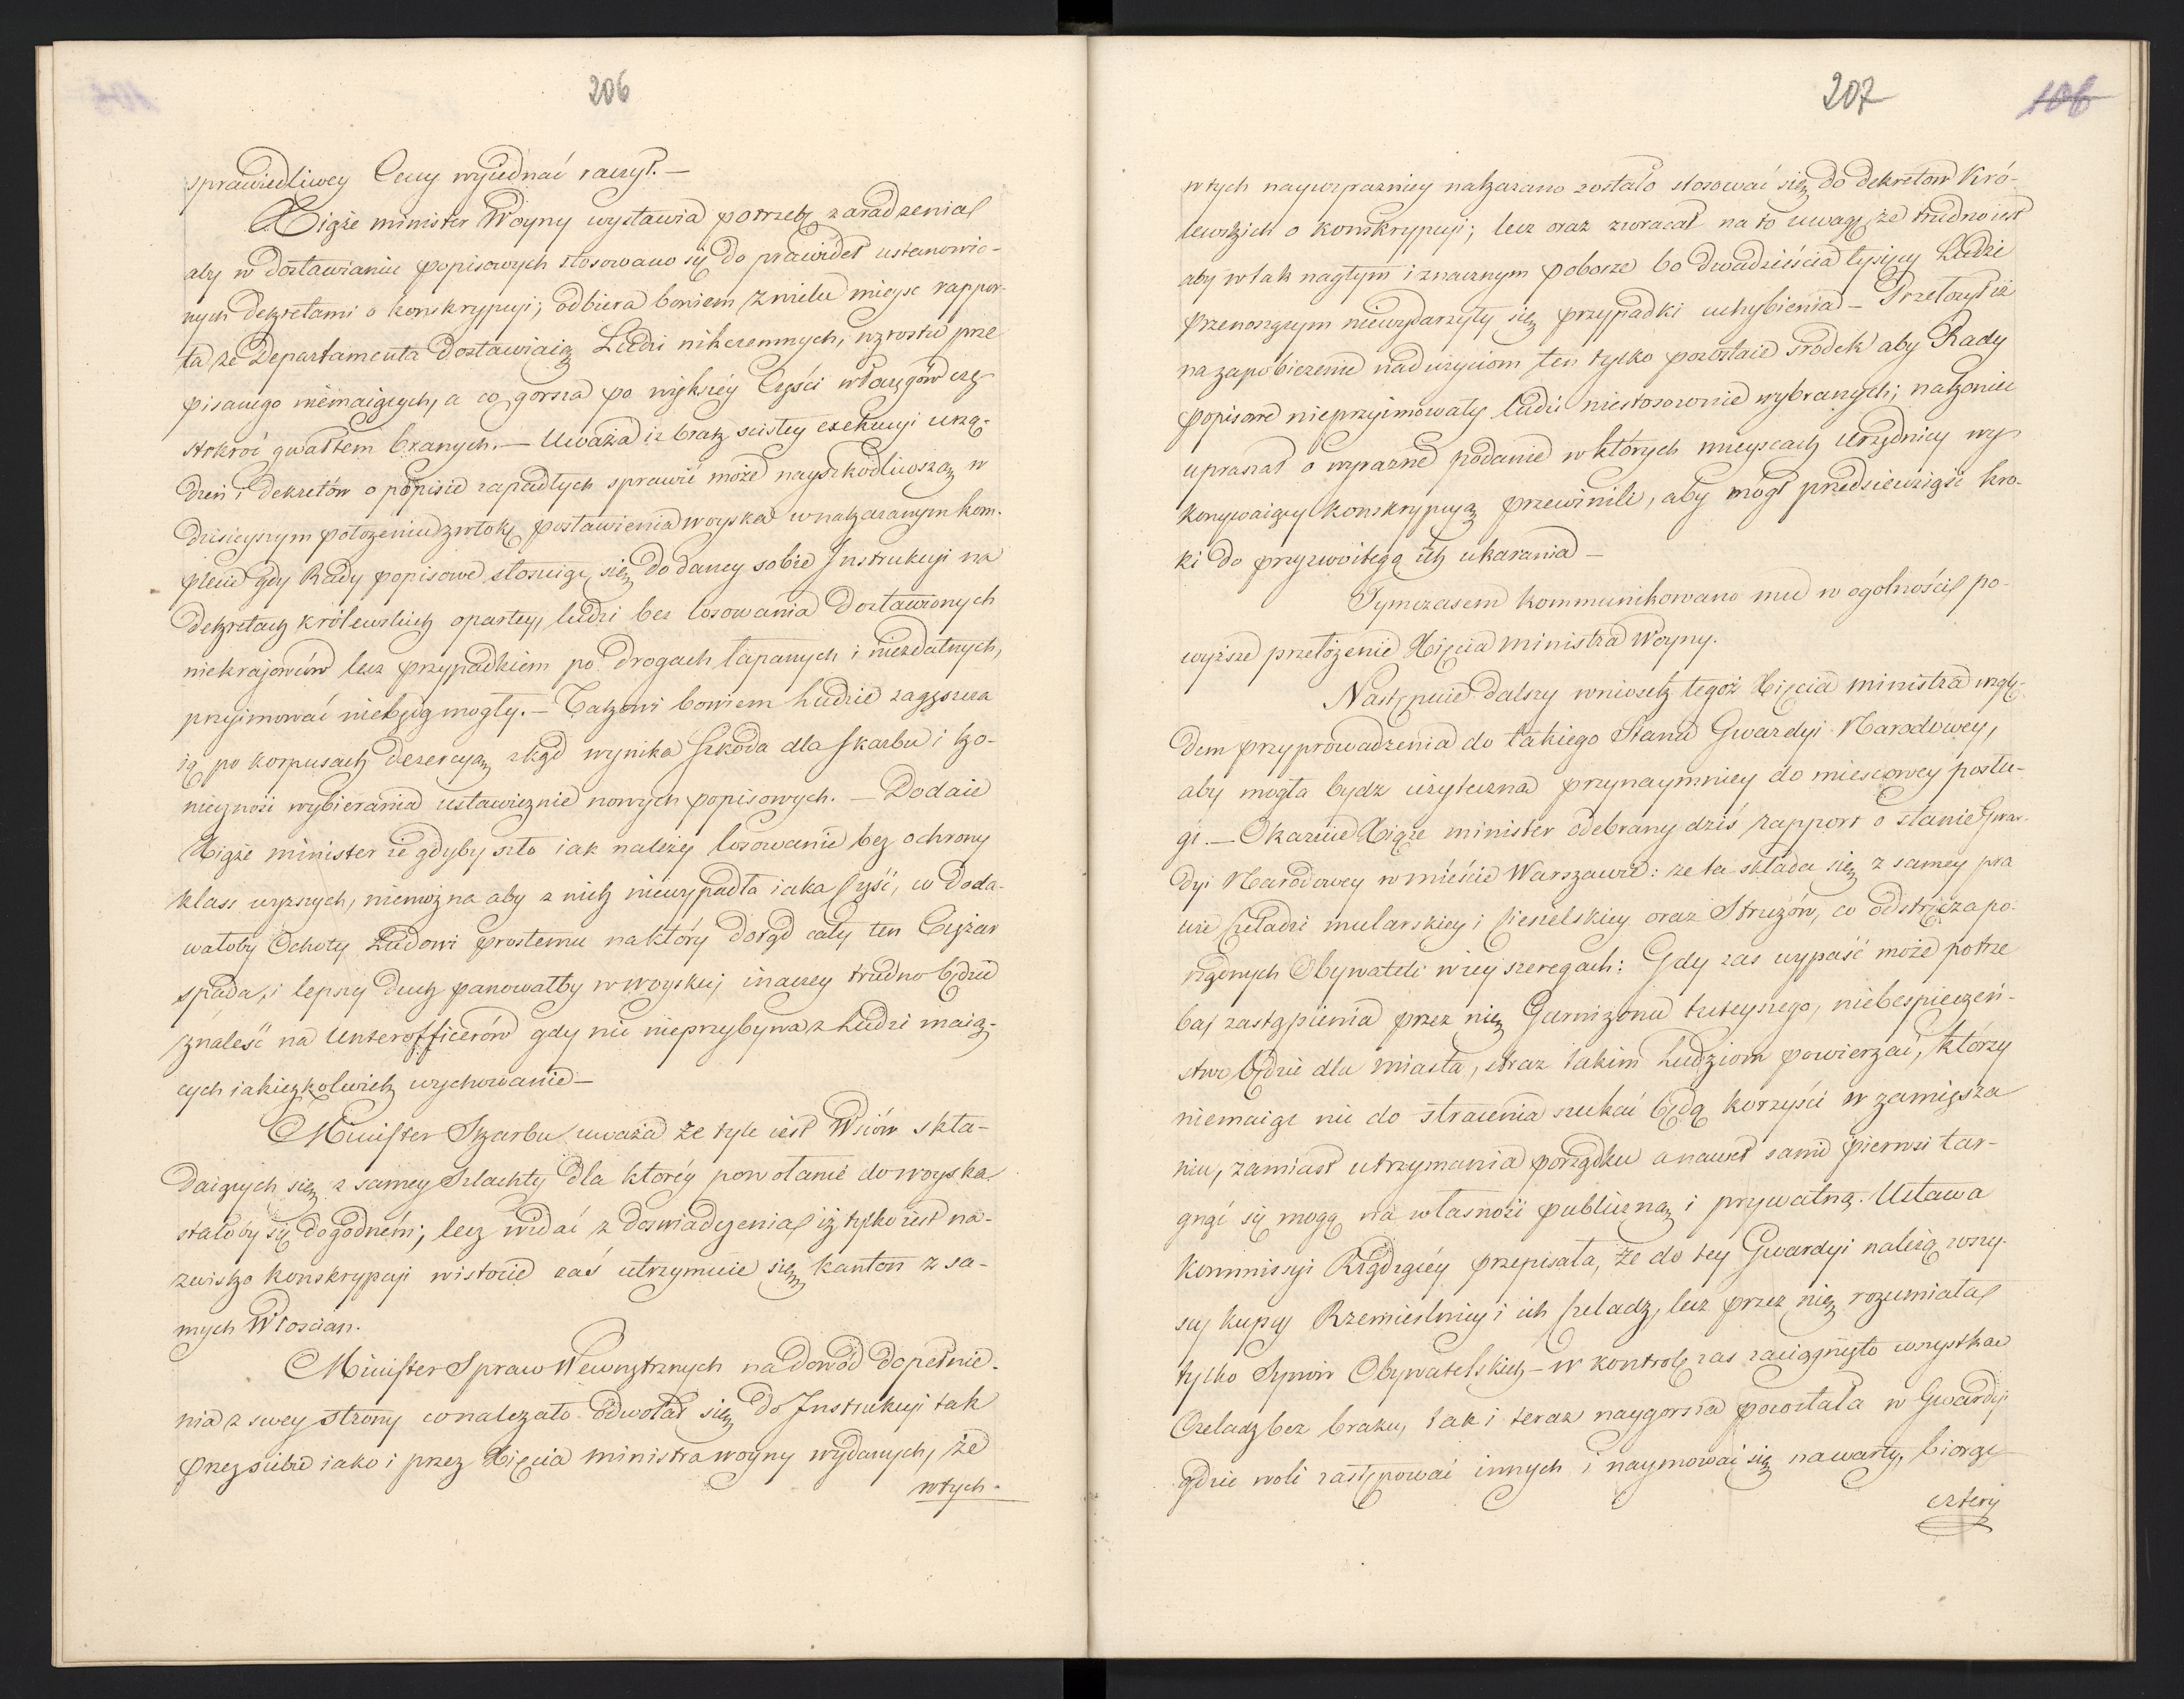 206
sprawiedliwey Ceny wyiednać raczył. —
Xiąże minister Woyny wystawia potrzebę zaradzenia
aby w dostawianiu popisowych stosowano się do prawideł ustanowio-
nych dekretami o konskrypcyi; odbiera bowiem z wielu mieysc rappor-
ta, że Departamenta dostawiaią Ludzi nikczemnych, wzrostu prze
pisanego niemaiących, a co gorsza po większey Części włóczęgów czę-
stokroć gwałtem branych. — Uważa iż brak scisłey exekucyi urzą-
dzeń i dekretów o popisie zapadłych sprawić może nayszkodliwszą w
dzisieyszym położeniu zwłokę postawienia woyska w nakazanym kom-
plecie gdy Rady popisowe stosuiąc się do daney sobie Instrukcyi na
dekretach królewskich opartey, ludzi bez losowania dostawionych
niekrajowców lecz przypadkiem po drogach łapanych i niezdatnych,
przyimować niebędą mogły. — Takowi bowiem Ludzie zagęszcza
ią po korpusach dezercyą, zkąd wynika Szkoda dla skarbu i ko-
nieczność wybierania ustawicznie nowych popisowych. — Dodaie
Xiąże minister że gdyby szło iak należy losowanie bez ochrony
klass wyższych, niemożna aby z nich niewypadła iaka część, co doda-
wałoby Ochoty Ludowi prostemu na który dotąd cały ten Ciężar
spada, i lepszy duch panowałby w woysku; inaczey trudno będzie
znaleść na Unterofficerów gdy nic nieprzybywa z Ludzi maią-
cych iakieżkolwiek wychowanie —
Minister Skarbu uważa że tyle iest Wsiów skła-
daiących się z samey Szlachty dla którey powołanie do woyska
stałoby się dogodném; lecz widać z doswiadczenia iż tylko iest na-
zwisko konskrypcyi w istocie zaś utrzymuie się kanton z sa-
mych Włoscian.
Minister Spraw Wewnętrznych na dowód dopełnie-
nia z swey strony co należało odwołał się do Instrukcyi tak
przez siebie iako i przez Xięcia ministra woyny wydanych, że
w tych -
207
106
w tych naywyrazniey nakazano zostało stosować się do dekretów Kró-
lewskich o konskrypcyi; lecz oraz zwracał na to uwagę że trudno iest
aby w tak nagłym i znacznym poborze bo dwadzieścia tysięcy Ludzi
przenoszącym niewydarzyły się przypadki uchybienia — Przełożył iż
na zapobieżenie nadużyciom ten tylko pozostaie srodek aby Rady
popisowe nieprzyimowały ludzi niestosownie wybranych; nakoniec
upraszał o wyrazne podanie w których mieyscach Urzędnicy wy-
konywaiący konskrypcyą przewinili, aby mógł przedsiewziąść kro-
ki do przyzwoitego ich ukarania —
Tymczasem kommunikowano mu w ogolności po-
wyższe przełożenie Xięcia ministra Woyny.
Następnie dalszy wniosek tegoż Xięcia ministra wzglę-
dem przyprowadzenia do takiego Stanu Gwardyi Narodowey,
aby mogła bydz użyteczna przynaymniey do miescowey posłu-
gi. — Okazuie Xiąże minister odebrany dziś rapport o stanie Gwar-
dyi Narodowey w miéście Warszawie: że ta składa się z samey pra
wie czeladzi mularskiey i ciesielskiey oraz Stružów, co odstręcza po-
rządnych Obywateli w iey szeregach: Gdy zas wypaść może potrze
ba zastąpienia przez nię Garnizonu tuteyszego, niebespieczeń-
stwo będzie dla miasta, straz takim Ludziom powierzać, którzy
niemaiąc nic do stracenia szukać będą korzyści w zamięsza
niu, zamiast utrzymania porządku a nawet sami pierwsi tar-
gnąć się mogą na własność publiczną i prywatną. Ustawa
Kommissyi Rządzącéy przepisała, że do tey Gwardyi należą wszy-
scy kupcy Rzemieslnicy i ich czeladz, lecz przez nię rozumiała
tylko Synów Obywatelskich — w kontrolę zas zaciągnięto wszystkae
Czeladz bez braku, tak i teraz naygorsza pozostała w Gwardyi
gdzie woli zastępować innych i naymować się na warty, biorąc
cztery